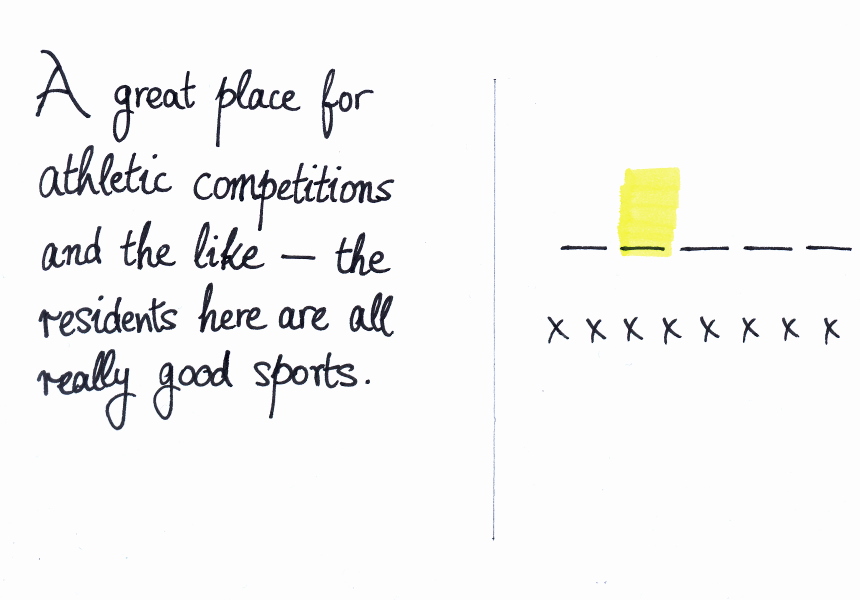 A great place for
athletic competitions
and the like – the
residents here are all
really good sports.
_ _ _ _ _
x x x x x x x x